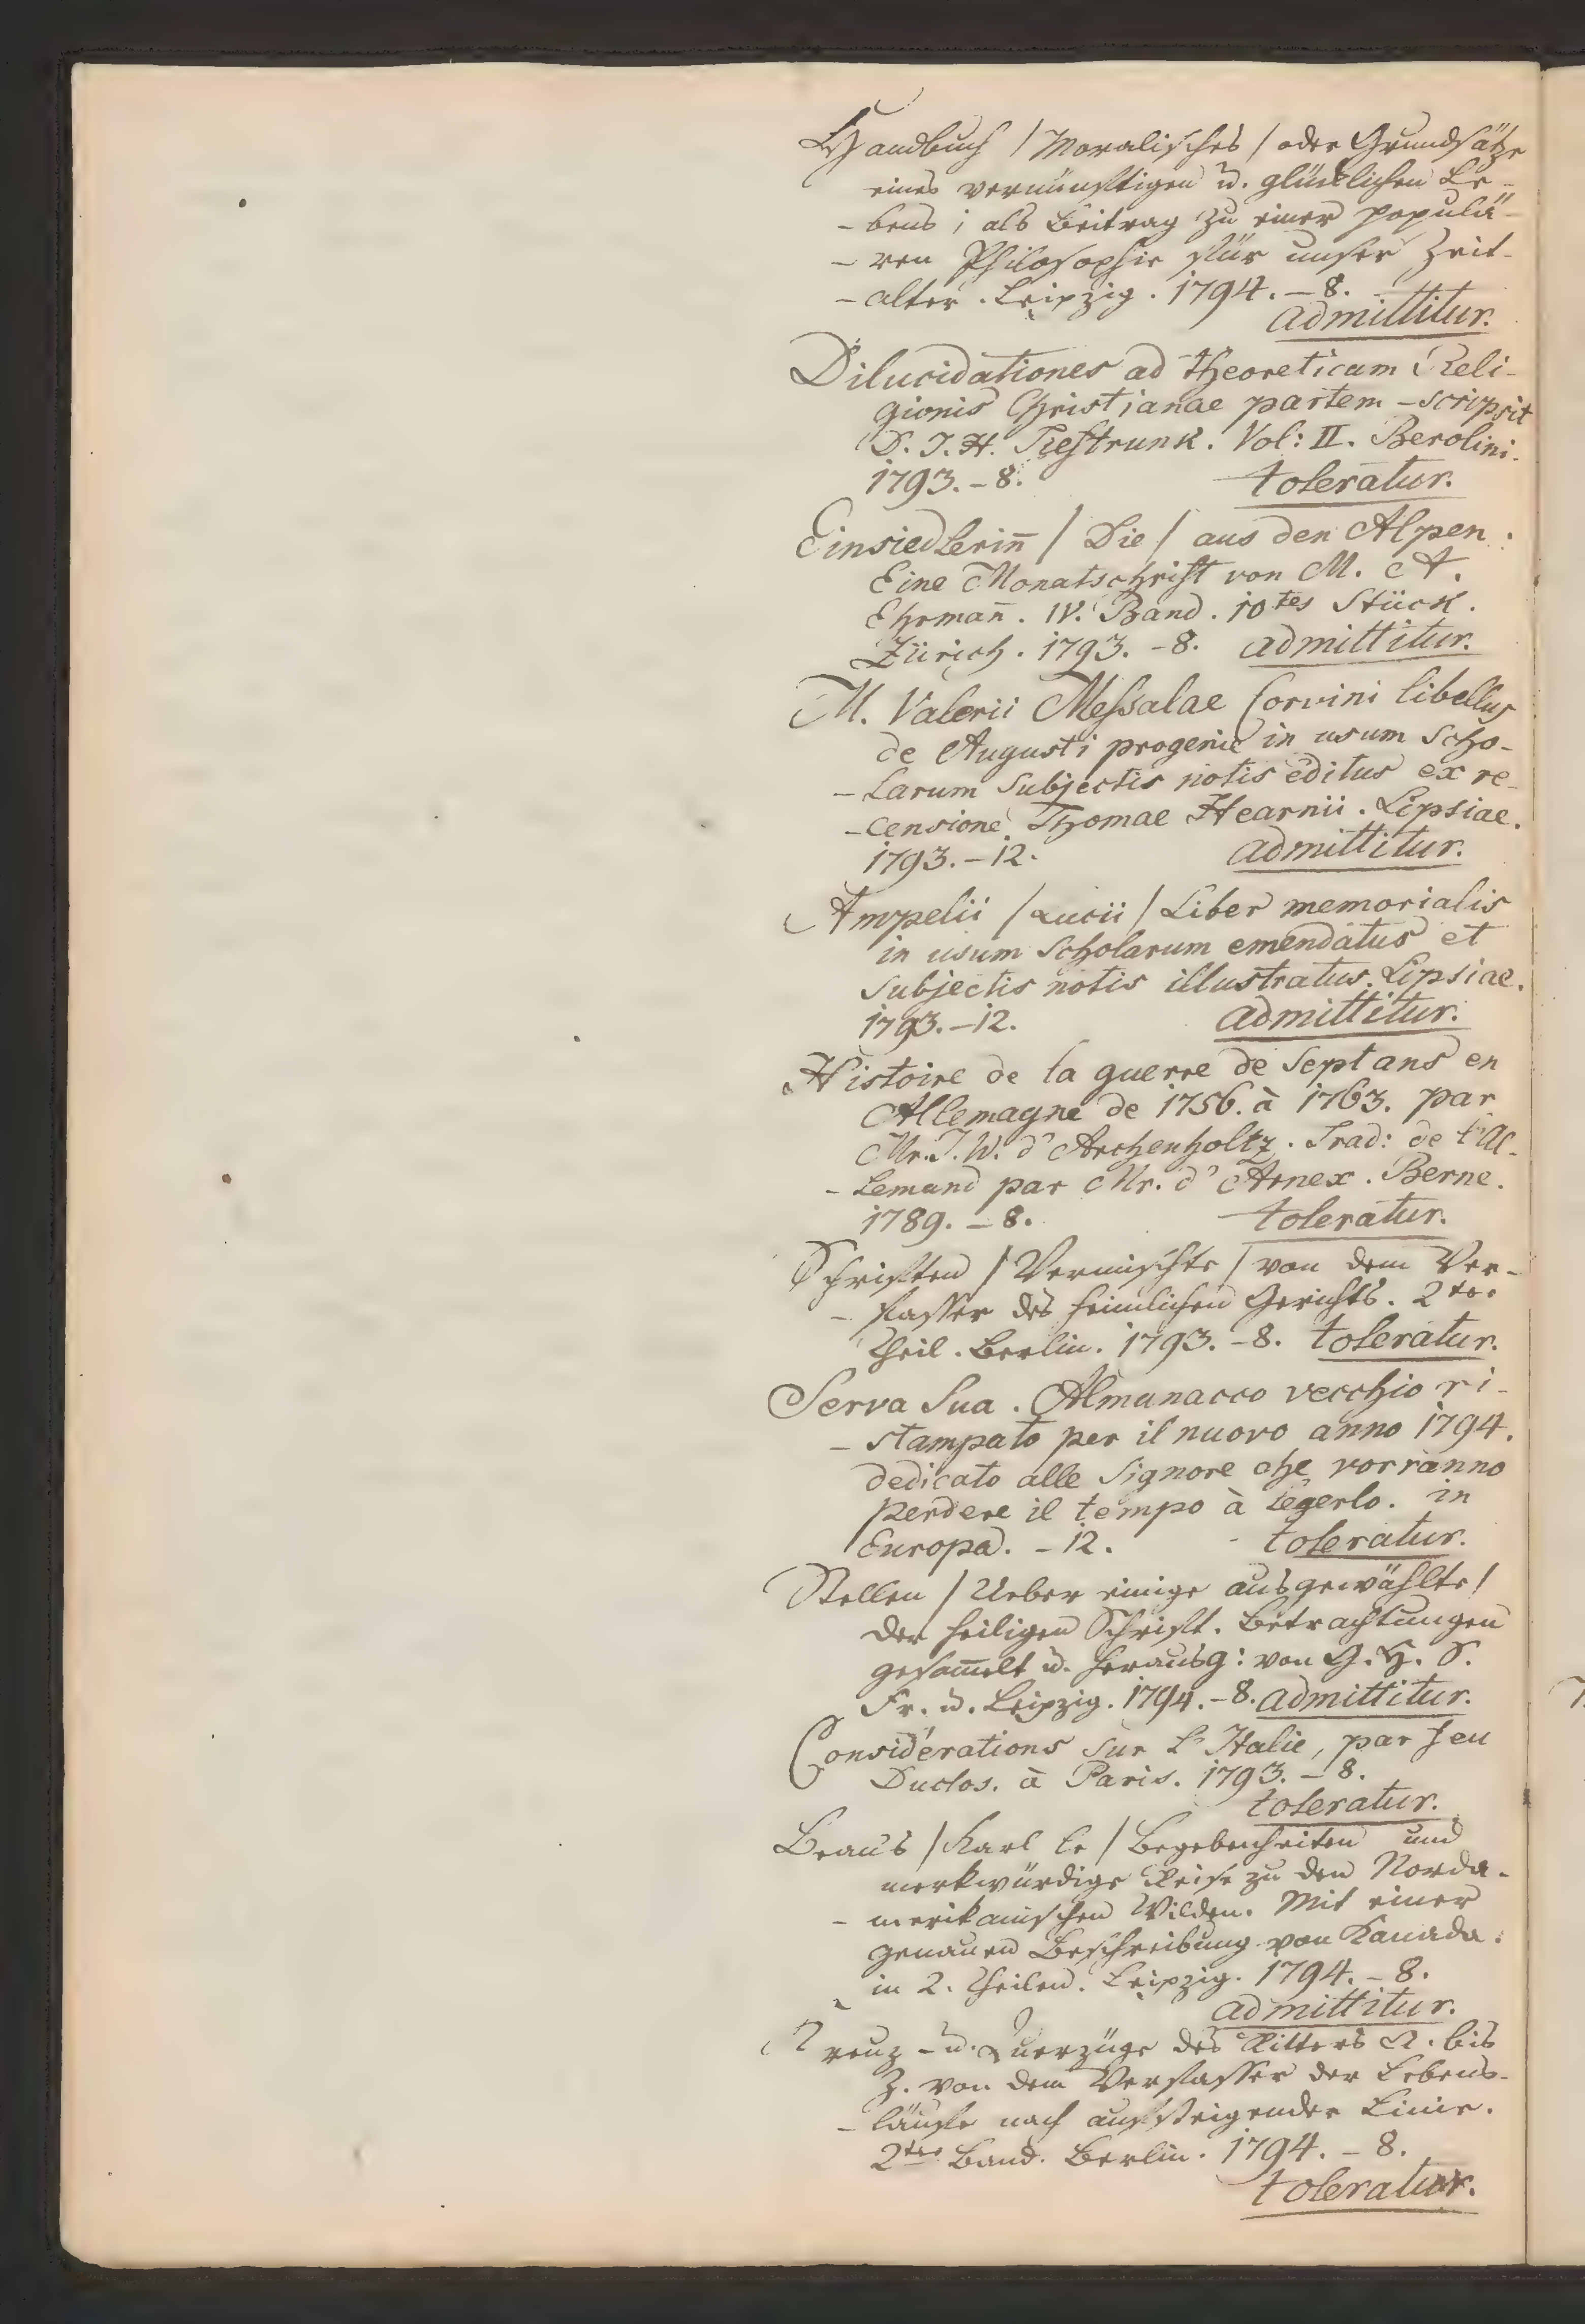 Handbuch /Moralisches/ oder Grundsätze
eines vernünftigen u. glücklichen Le-
-bens; als Beitrag zu einer populä-
-ren Philosophie für unser Zeit-
-alter. Leipzig. 1794. - 8.
admittitur.
Dilucidationes ad theoreticam Reli-
gionis Christianae partem - scripsit
D. I. H. Tieftrunk. Vol: II. Berolini.
1793. - 8. toleratur.
Einsiedlerin̄ / Die / aus den Alpen:
Eine Monatschrift von M. A.
Ehrman̄. IV. Band. 10tes Stück.
Zürich. 1793. - 8. admittitur.
M. Valerii Messalae Corvini libellus
de Augusti progenie in usum scho-
-larum subjectis notis editus ex re-
-censione Thomae Hearnii. Lipsiae.
1793. - 12. admittitur.
Ampelii / Lucii / Liber memorialis
in usum scholarum emendatus et
subjectis notis illustratus. Lipsiae.
1793. - 12. admittitur.
Histoire de la guerre de Sept ans en
Allemagne de 1756. à 1763. par
Mr. J. W. d'Archenholtz. Trad: de l'Al-
-lemand par Mr. d'Arnex. Berne.
1789. - 8. toleratur.
Schriften / Vermischte / von dem Ver-
-fasser des heimlichen Gerichts. 2ter
Theil. Berlin. 1793. - 8. toleratur.
Serva Sua. Almanacco vecchio ri-
-stampato per il nuovo anno 1794.
dedicato alle Signore che vorranno
perdere il tempo à legerlo. in
Europa. - 12. toleratur.
Stellen / Ueber einige ausgewählte /
der heiligen Schrift. Betrachtungen
gesam̄elt u. herausg: von G. H. S.
Fr. u. Leipzig. 1794. - 8. admittitur.
Considérations sur L'Italie, par feu
Duclos. à Paris. 1793. - 8.
toleratur.
Beau's / Karl le / Begebenheiten und
merkwürdige Reise zu den Norda-
-merikanischen Wilden. Mit einer
genauen Beschreibung von Kanada.
in 2. Theilen. Leipzig. 1794. - 8.
admittitur.
Kreuz- u. Querzüge des Ritters A. bis
Z. von dem Verfasser der Lebens-
-läufe nach aufsteigender Linie.
2ter Band. Berlin. 1794. - 8.
toleratur.